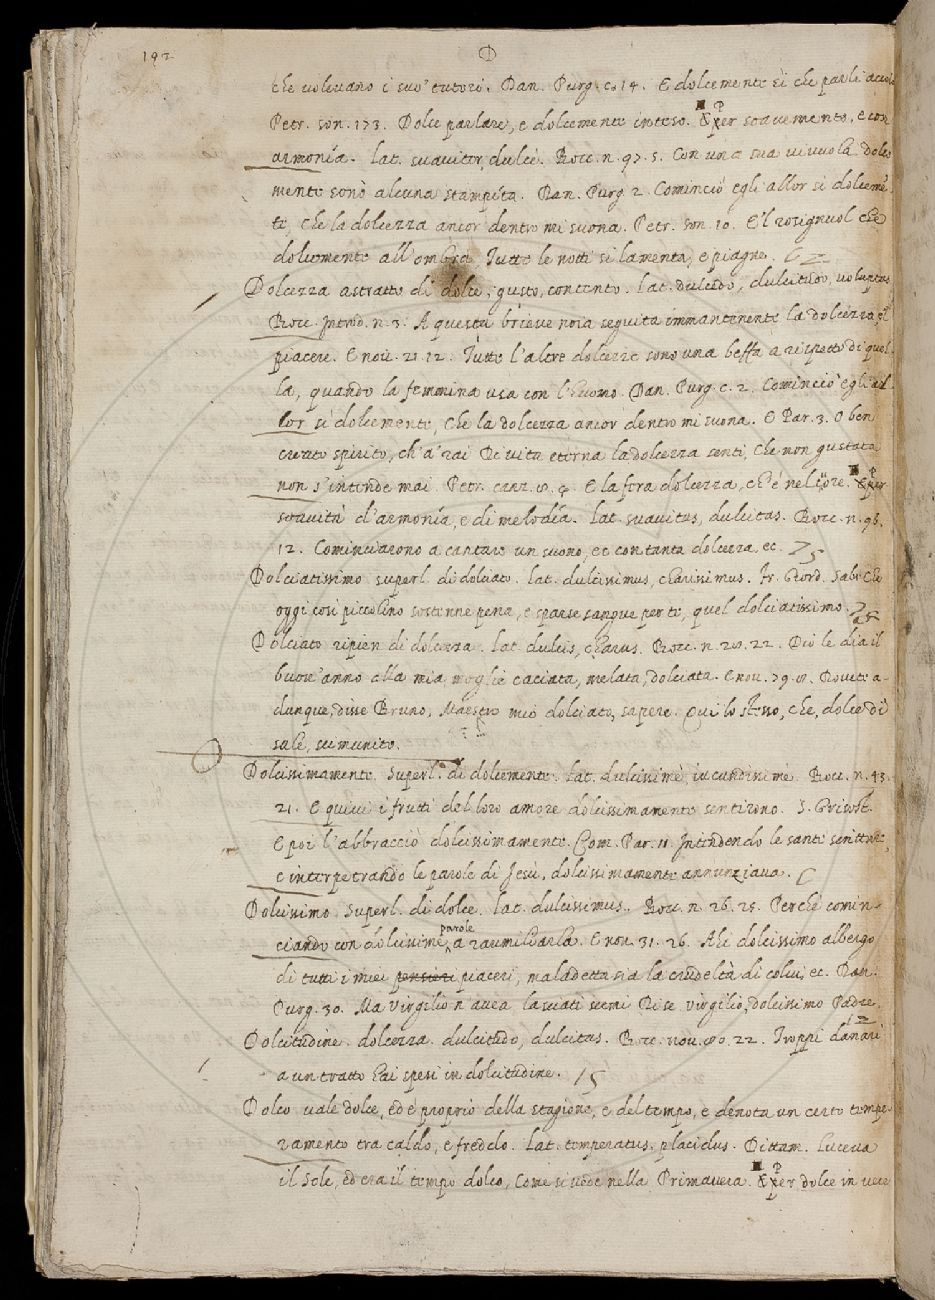 192
D
che voleuano i suo' tutori. Dan. Purg. c. 14. E dolcemente sì che parli
Petr. son. 173. Dolce parlare, e dolcemente inteso. ■ P & per soauemente, e con
armonía. Lat. suauiter, dulcè. Bocc. n. 97. 5. Con una sua viuuola dolce
mente sonò alcuna stampíta. Dan. Purg. 2. Cominciò egli allor sì dolcemẽ
te, che la dolcezza ancor dentro mi suona. Petr. son. 10. E'l rosignuol che
dolcemente all'ombra, Tutte le notti si lamenta, e piagne.
Dolcezza astratto di dolce, gusto, contento. Lat. dulcedo, dulcitudo, voluptas
Bocc. Introd. n. 3. A questa brieue noia seguita immantenente la dolcezza, e'l
piacere. E nou. 21. 12. Tutte l'altre dolcezze sono una beffa a rispetto di quel-
la, quando la femmina usa con l'huomo. Dan. Purg. c. 2. Cominciò egli al-
lor sì dolcemente, Che la dolcezza ancor dentro mi suona. E Par. 3. O ben
creato spirito, ch'a' rai Di vita eterna la dolcezza senti, Che non gustata
non s'intende mai. Petr. canz. 8. 9. E la fera dolcezza, ch'è nel core. ■ P & per
soauità d'armonía, e di melodía. Lat. suauitas, dulcitas. Bocc. n. 98.
12. Cominciarono a cantare un suono, ec con tanta dolcezza ec. 75
Dolciatissimo superl. di dolciato. Lat. dulcissimus, charissimus. Fr. Giord. Salu. Che
oggi così piccolino sostenne pena, e sparse sangue per te, quel dolciatissimo. 75
Dolciato ripien di dolcezza. Lat. dulcis, charus. Bocc. n. 28. 22. Dio le dia il
buon'anno alla mia moglie caciata, melata, dolciata. E nou. 79. 8. Bouete a-
dunque, disse Bruno, Maestro mio dolciato, sapere. Qui lo stesso, che, dolce di
sale, scimunito.
Dolcissimamente. Superl. di dolcemente. Lat. dulcissimè, iucundissimè. Bocc. n. 43.
21. E quiui i frutti del loro amore dolcissimamente sentirono. S. Grisost.
E poi l'abbracciò dolcissimamente. Com. Par. 11. Intendendo le sante scritture,
e interpetrando le parole di Iesù, dolcissimamente annunziaua.
Dolcissimo. Superl. di dolce. Lat. dulcissimus. Bocc. n. 26. 25. Perchè comin-
ciando con dolcissime parole a raumiliarla. E nou. 31. 26. Ahi dolcissimo albergo
di tutti i miei pensieri piaceri, maladetta sia la crudeltà di colui ec. Dan.
Purg. 30. Ma Virgilio n'auea lasciati scemi Di se virgilio, dolcissimo Padre.
Dolcitudine. dolcezza. dulcitudo, dulcitas. Bocc. nou. 80. 22. Troppi danari 12
a un tratto hai spesi in dolcitudine. 15
Dolco vale dolce, ed è proprio della stagione, e del tempo, e denota un certo tempe-
ramento tra caldo, e freddo. Lat. temperatus, placidus. Dittam. Luceua
il Sole, ed era il tempo dolco, Come si vede nella Primauera. ■ P & per dolce in vece